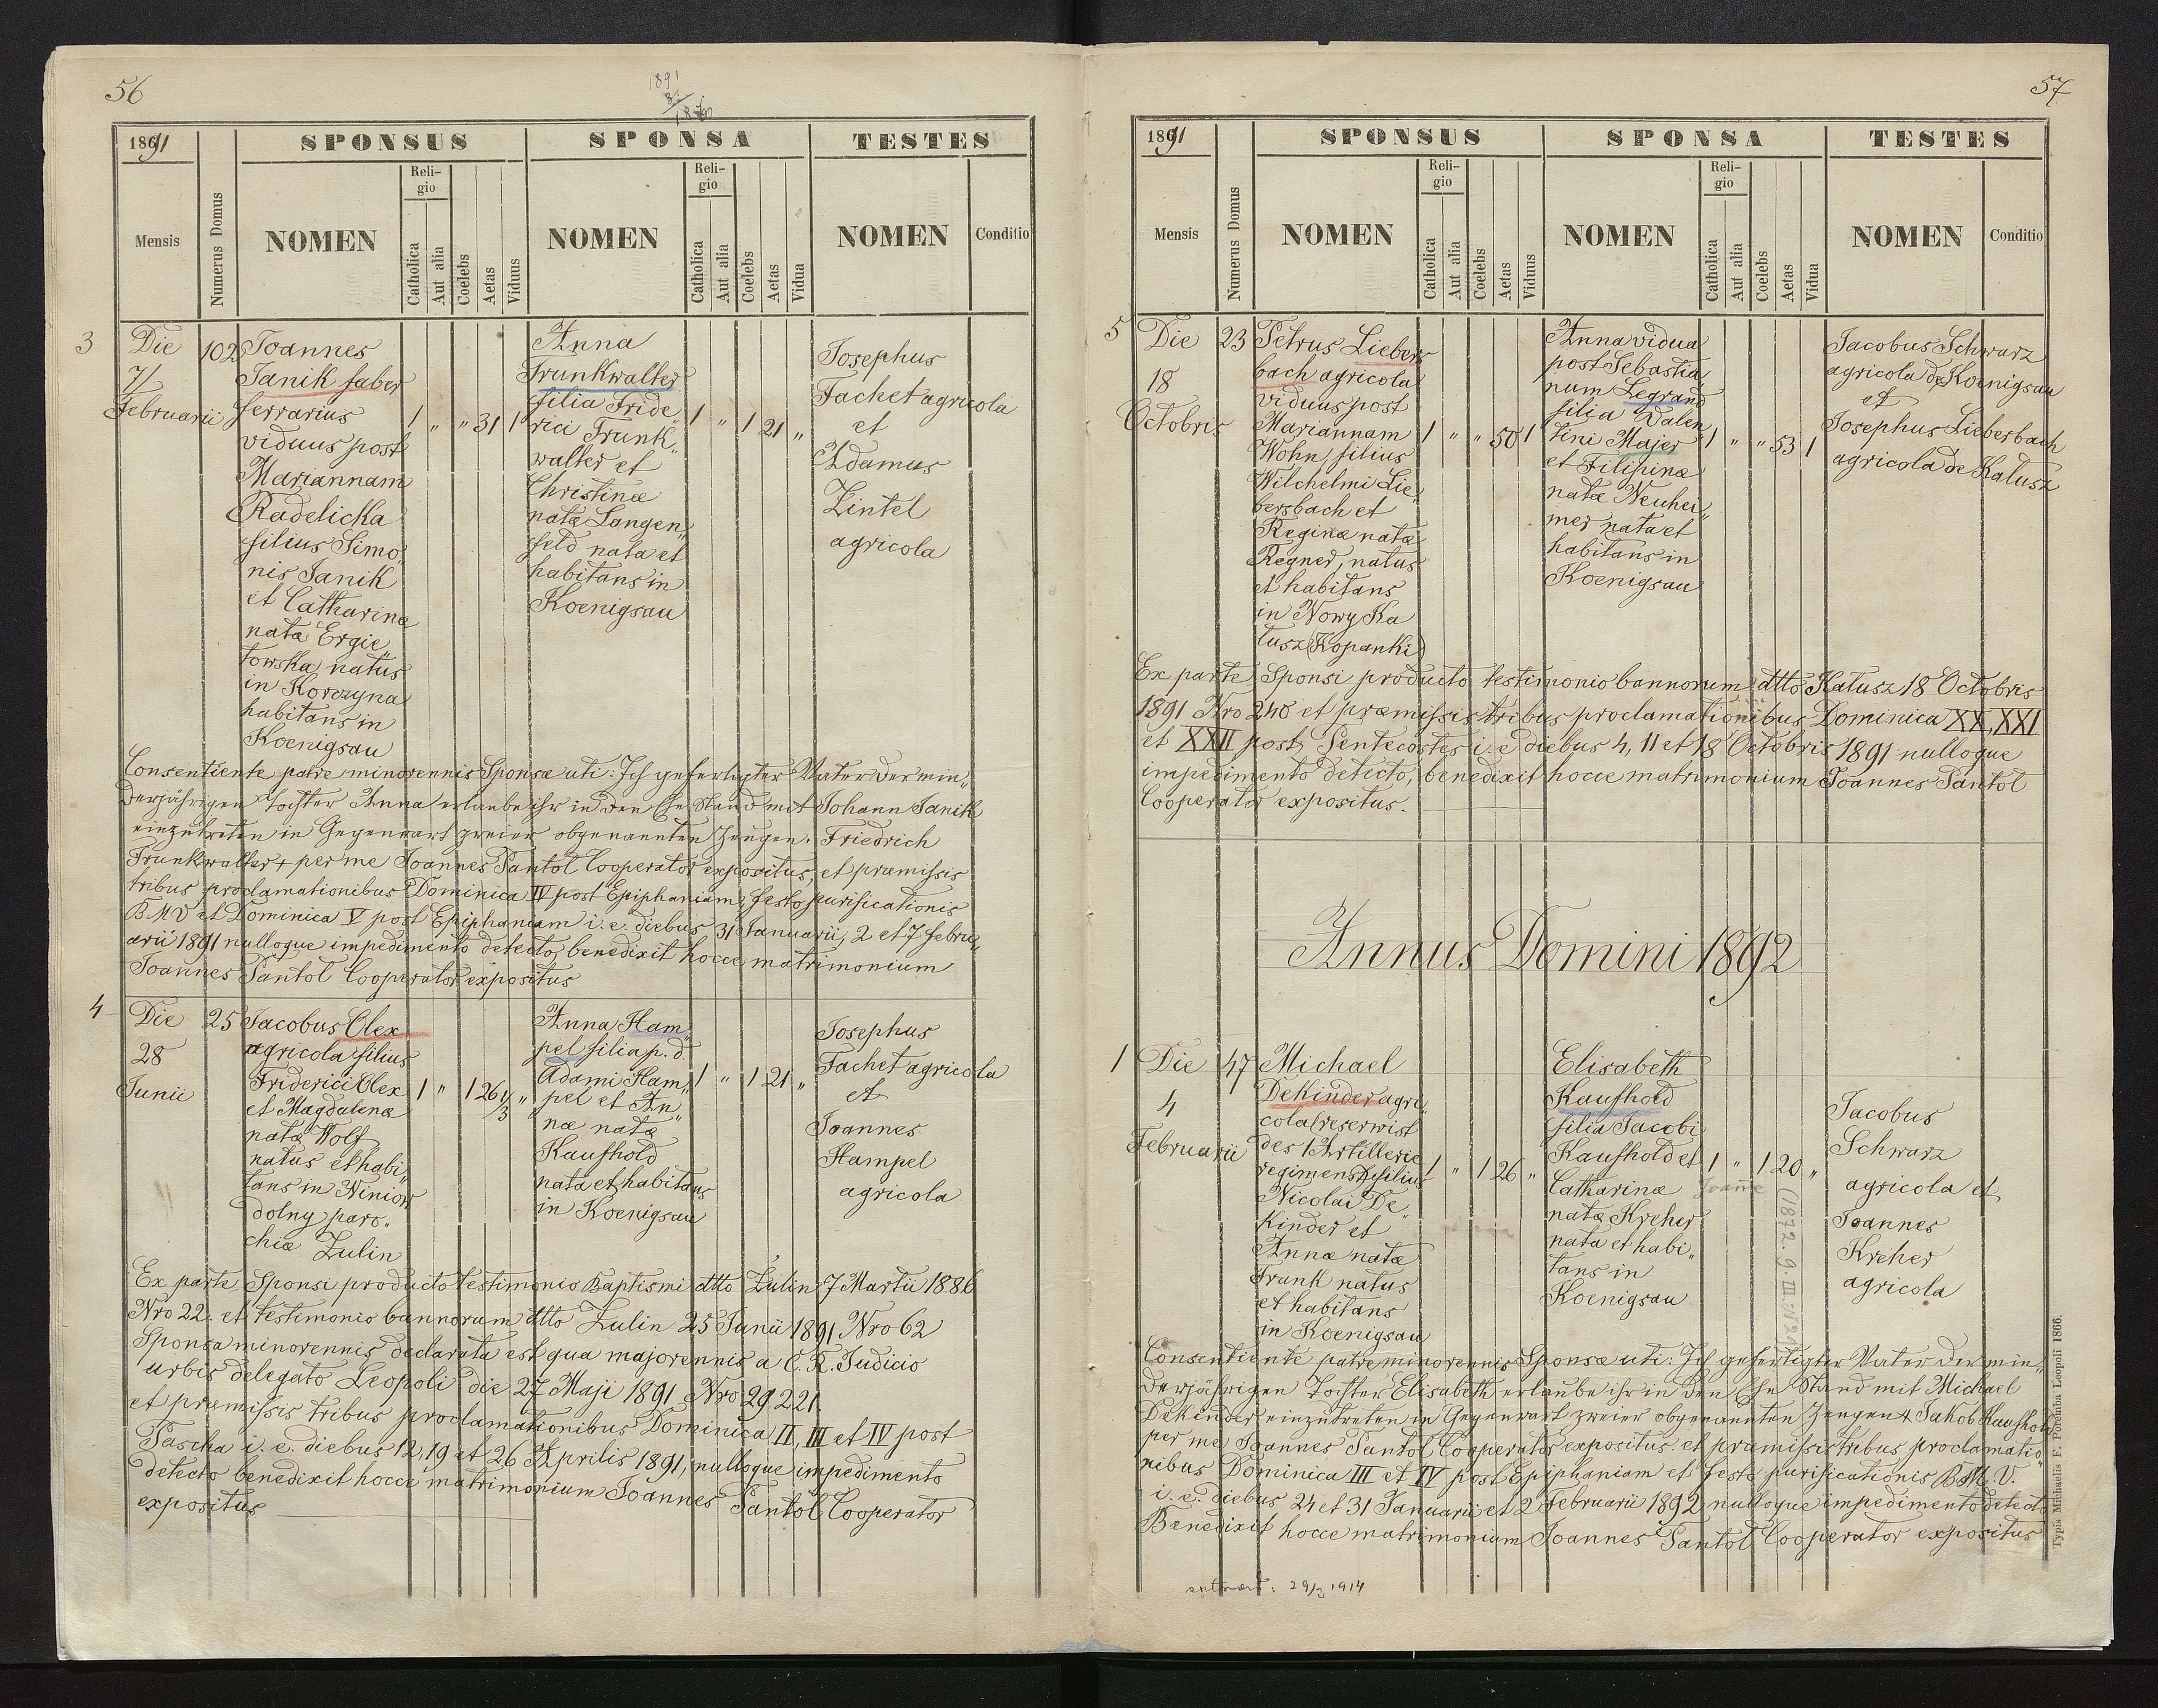 56
1891
SPONSUS
SPONSA
TESTES
Mensis
Numerus Domus
NOMEN
Religio
Catholica
Aut alia
Coelebs
Aetas
Viduus
NOMEN
Religio
Catholica
Aut alia
Coelebs
Aetas
Vidua
NOMEN
Conditio
3
Die
7/
Februarii
102
Joannes
Janik faber
ferrarius
viduus post
Mariannam
Radelicka
filius Simo„
nis Janik
et Catharinæ
natæ Ergie„
towska, natus
in Korczyna
habitans in
Koenigsau
1 „ „ 31 1
Anna
Trunkwalter
filia Fride„
rici Trunk„
walter et
Christinæ
natæ Langen„
feld nata et
habitans in
Koenigsau
1 „ 1 21 „
Josephus
Fachet agricola
et
Adamus
Zintel
agricola
Consentiente patre minorennis Sponsæ uti: Ich gefertigter Vater der min„
derjährigen Tochter Anna erlaube ihr in den Ehe Stand mit Johann Janik
einzutreten in Gegenwart zweier obgenannten Zeugen. Friedrich
Trunkwalter + per me Joannes Pantoł Cooperator expositus, et præmissis
tribus proclamationibus Dominica IV post Epiphaniam, festo purificationis
B M V et Dominica V post Epiphaniam i. e. diebus 31 Januarii, 2 et 7 febru„
arii 1891 nulloque impedimento detecto, benedixit hocce matrimonium
Joannes Pantoł Cooperator expositus
4
Die
28
Junii
25
Jacobus Olex
agricola filius
Friderici Olex
et Magdalenæ
natæ Wolf
natus et habi„
tans in Niniow
dolny paro„
chiæ Zulin
1 „ 1 26 1/3 „
Anna Ham„
pel filia p. d.
Adami Ham„
pel et An„
næ natæ
Kaufhold
nata et habitans
in Koenigsau
1 „ 1 21 „
Josephus
Fachet agricola
et
Joannes
Hampel
agricola
Ex parte Sponsi producto testimonio Baptismi dtto Zulin 7 Martii 1886
Nro 22. et testimonio bannorum dtto Zulin 25 Junii 1891 Nro 62
Sponsa minorennis declarata est qua majorennis a C. R. Judicio
urbis delegato Leopoli die 27 Maji 1891 Nro 29221
et præmissis tribus proclamationibus Dominica II, III et IV post
Pascha i. e. diebus 12, 19 et 26 Aprilis 1891, nulloque impedimento
detecto benedixit hocce matrimonium Joannes Pantoł Cooperator
expositus
57
1891
SPONSUS
SPONSA
TESTES
Mensis
Numerus Domus
NOMEN
Religio
Catholica
Aut alia
Coelebs
Aetas
Viduus
NOMEN
Religio
Catholica
Aut alia
Coelebs
Aetas
Vidua
NOMEN
Conditio
5
Die
18
Octobris
23
Petrus Liebers
bach agricola
viduus post
Mariannam
Wohn, filius
Wilchelmi Lie„
bersbach et
Reginæ natæ
Regner, natus
et habitans
in Nowy Ka
łusz (Kopanki)
1 „ „ 50 1
Anna vidua
post Sebastia„
num Legrand
filia Valen„
tini Majer
et Filipinæ
natæ Neuhei„
mer nata et
habitans in
Koenigsau
1 „ „ 53 1
Jacobus Schwarz
agricola de Koenigsau
et
Josephus Liebersbach
agricola de Kałusz
Ex parte Sponsi producto testimonio bannorum dtto Kałusz 18 Octobris
1891 Nro 248 et præmissis tribus proclamationibus Dominica XX, XXI
et XXII post Pentecostes i. e. diebus 4, 11 et 18 Octobris 1891 nulloque
impedimento detecto, benedixit hocce matrimonium Joannes Pantoł
Cooperator expositus.
Annus Domini 1892
1
Die
4
Februarii
47
Michael
Dekinder agri„
cola (reserwist
des 1 Artillerie
regimens) filius
Nicolai De„
kinder et
Annæ natæ
Frank natus
et habitans
in Koenigsau
1 „ 1 26 „
Elisabeth
Kaufhold
filia Jacobi
Kaufhold et
Catharinæ
natæ Kreher
nata et habi„
tans in
Koenigsau
1 „ 1 20 „
Jacobus
Schwarz
agricola et
Joannes
Kreher
agricola
Consentiente patre minorennis Sponsæ uti: Ich gefertigter Vater der min„
derjährigen Tochter Elisabeth erlaube ihr in den Ehe Stand mit Michael
Dekinder einzutreten in Gegenwart zweier obgenannten Zeugen + Jakob Kaufhold
per me Joannes Pantoł Cooperator expositus. et præmissis tribus proclamatio„
nibus Dominica III et IV post Epiphaniam et festo purificationis B. M. V.
i. e. diebus 24 et 31 Januarii et 2 Februarii 1892 nulloque impedimento detecto
Benedixit hocce matrimonium Joannes Pantoł Cooperator expositus
29/3 1914
Typis Michaelis F. Poremba Leopoli 1866.